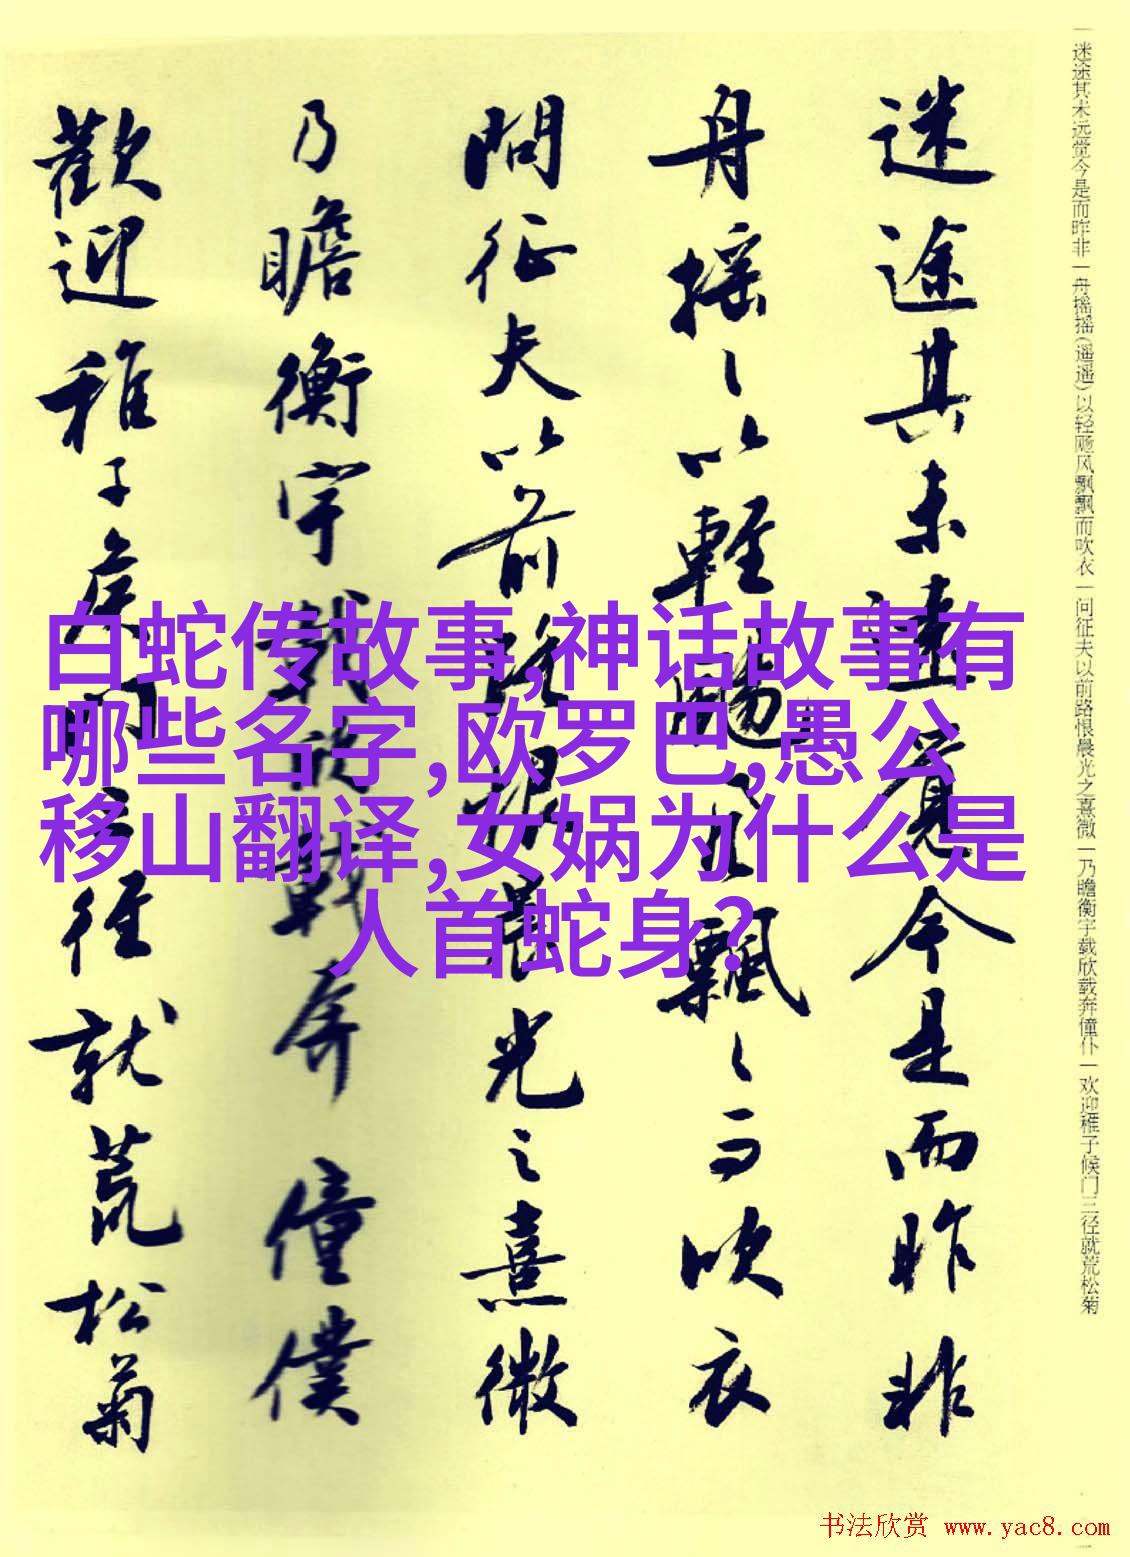 迷途其未远觉今是而昨非一舟摇摇(遥遥)以轻飏风飘飘而吹衣一问征夫以前路恨晨光之熹微一乃瞻衡宇载欣载奔僮仆一欢迎稚子候门三径就荒松菊
迷途其未遠覺今是而昨非
舟摇〻以輕颺風飄〻而吹衣
問征夫以前路恨晨光之熹微
乃瞻衡宇載欣載奔僮僕
歡迎稚子候門三徑就荒松菊
白蛇传故事,神话故事有
哪些名字,欧罗巴,愚公
移山翻译,女娲为什么是
人首蛇身?
书法欣赏 www.yac8.com